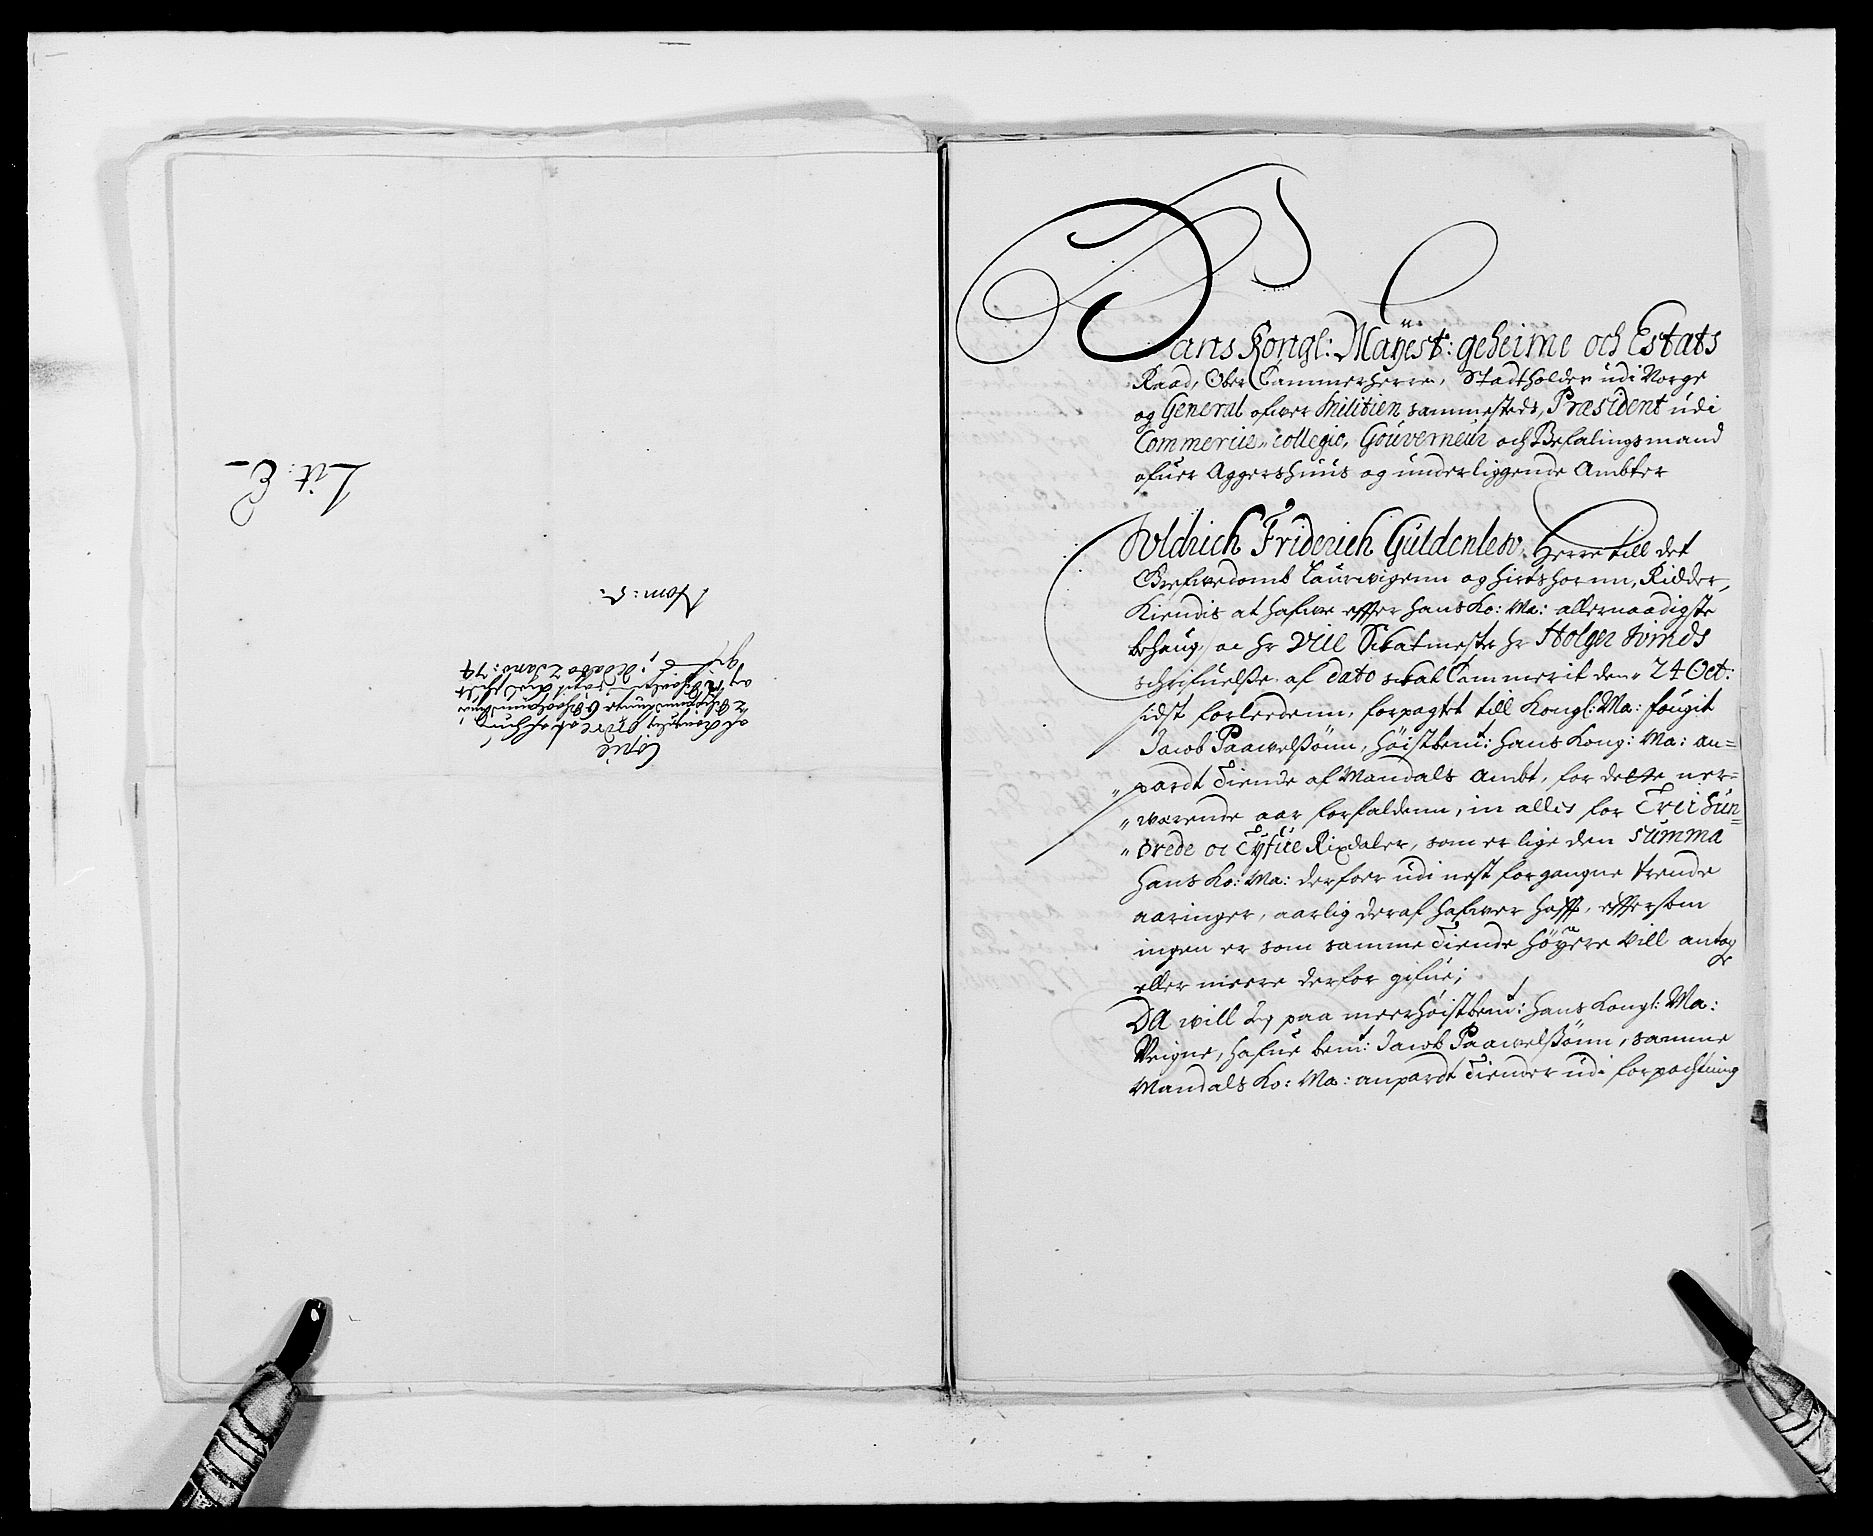 Lit: E
Nom: 5.
Copie
Hans Kongl: Mayest: geheime och Estats
Raad, Ober Cammerherre, Stadtholder udi Norge
og General ofwer Militien sammesteds, Præsident udi
Commercie collegio, Gouverneur och Befalingsmand
ofuer Aggershuus og underliggende Ambter
Uldrich Friderich Güldenlew, Herre till det
Grefwedomb Laurwigenn og Hirtshornn, Ridder,
Kiendis at hafwe effter hans Ko: Ma: allernaadigste
behaug, oc hr Skatmester hr Holger Winds
schrifuelsse af dato skat Cammerit den 24 Oct:
sidst forledenn, forpagtet till Kongl: Ma: fougit
Jacob Paawelssønn, høistbemt: hans Kong: Ma: an=
„ pardt Tiende af Mandals Ambt, for dette ner=
„ werende aar forfaldenn, in alles for Trei Hun=
„ drede oc Tyfue Rixdaler, som er lige den Summa
hans Ko: Ma: derfoer udi nest forgangne trende
aaringer, aarlig deraf hafwer hafft, efftersom
ingen er som samme Tiende høyere vill antage
eller meere derfor gifue;
DA will Jeg paa meerhøistbemt: hans Kongl: Ma:
Weigne, hafue bemt: Jacob Paawelssønn, samme
Mandals Ko: Ma: anpardt Tiender udi forpachtning